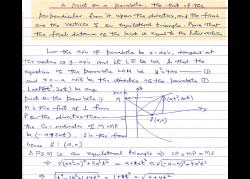 A point on a parabola, the foot of the
perpendicular from it upon the directrix, and the focus
are the vertices of an equilateral triangle. Prove that
the focal distance of the point is equal to the latus rectum
Let the axis of parabola be x-axis, tangent at
the vertex as y-axis and its LR be 4a, so that the
equation of the parabola will be y²=4ax — ①
and x=-a will be the directrix of the parabola ①
Let P(at², 2at) be any
point on the parabola if
M is the foot of ⊥ from
P on the directrix then
the co-ordinates of M will
be (-a, 2at). S is the focus
hence S: (a,0)
Δ PSM is an equilateral triangle ⇒ SP=MP=MS